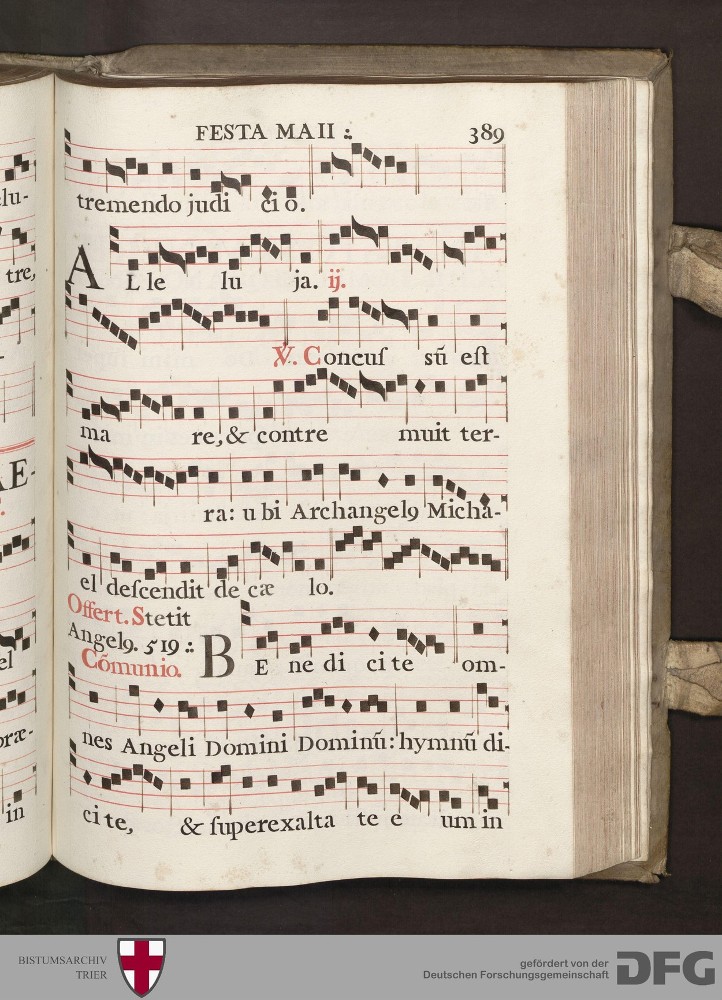 FESTA MAII :.
389
elu-
tremendo judi cio.
tre,
ALle lu ja. ij.
℣. Concuſ sū eſt
ma re, & contre muit ter-
AE-
ra: u bi Archangelꝰ Micha-
el deſcendit de cæ lo.
Offert. Stetit
Angelꝰ. 519 :.
Cōmunio.
BE ne di ci te om-
el
præ-
nes Angeli Domini Dominū: hymnū di-
in
ci te, & ſuperexalta te e um in
BISTUMSARCHIV
TRIER
gefördert von der
Deutschen Forschungsgemeinschaft
DFG